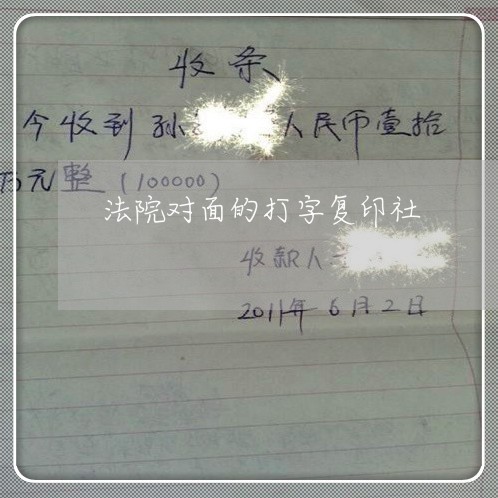 收条
今收到孙 人民币壹拾
万元整(100000)
法院对面的打字复印社
收款人
2011年6月2日